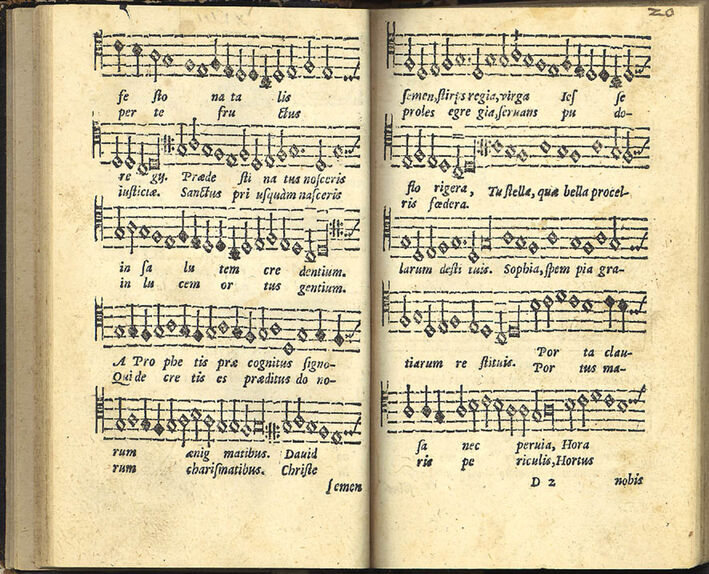 fe sto na ta lis
per te fru ctus
re gy. Præde sti na tus nosceris
iustictæ. Sanctus pri usquàm nasceris
in sa lu tem cre dentium.
in lu cem or tus gentium.
A Pro phe tis præ cognitus signo-
Qui de cre tis es præditus do no-
rum ænig matibus. Dauid
rum charismatibus. Christe
semen
20
semen, stirps regia, virga Ies se
proles egre gia, seruans pu do-
sto rigera, Tu stella, quæ bella procel-
ris fœdera.
larum desti tuis. Sophia, spem pia gra-
tiarum re stituis. Por ta clau-
Por tus ma-
sa nec peruia, Hora
ris pe riculis, Hortus
D 2 nobis